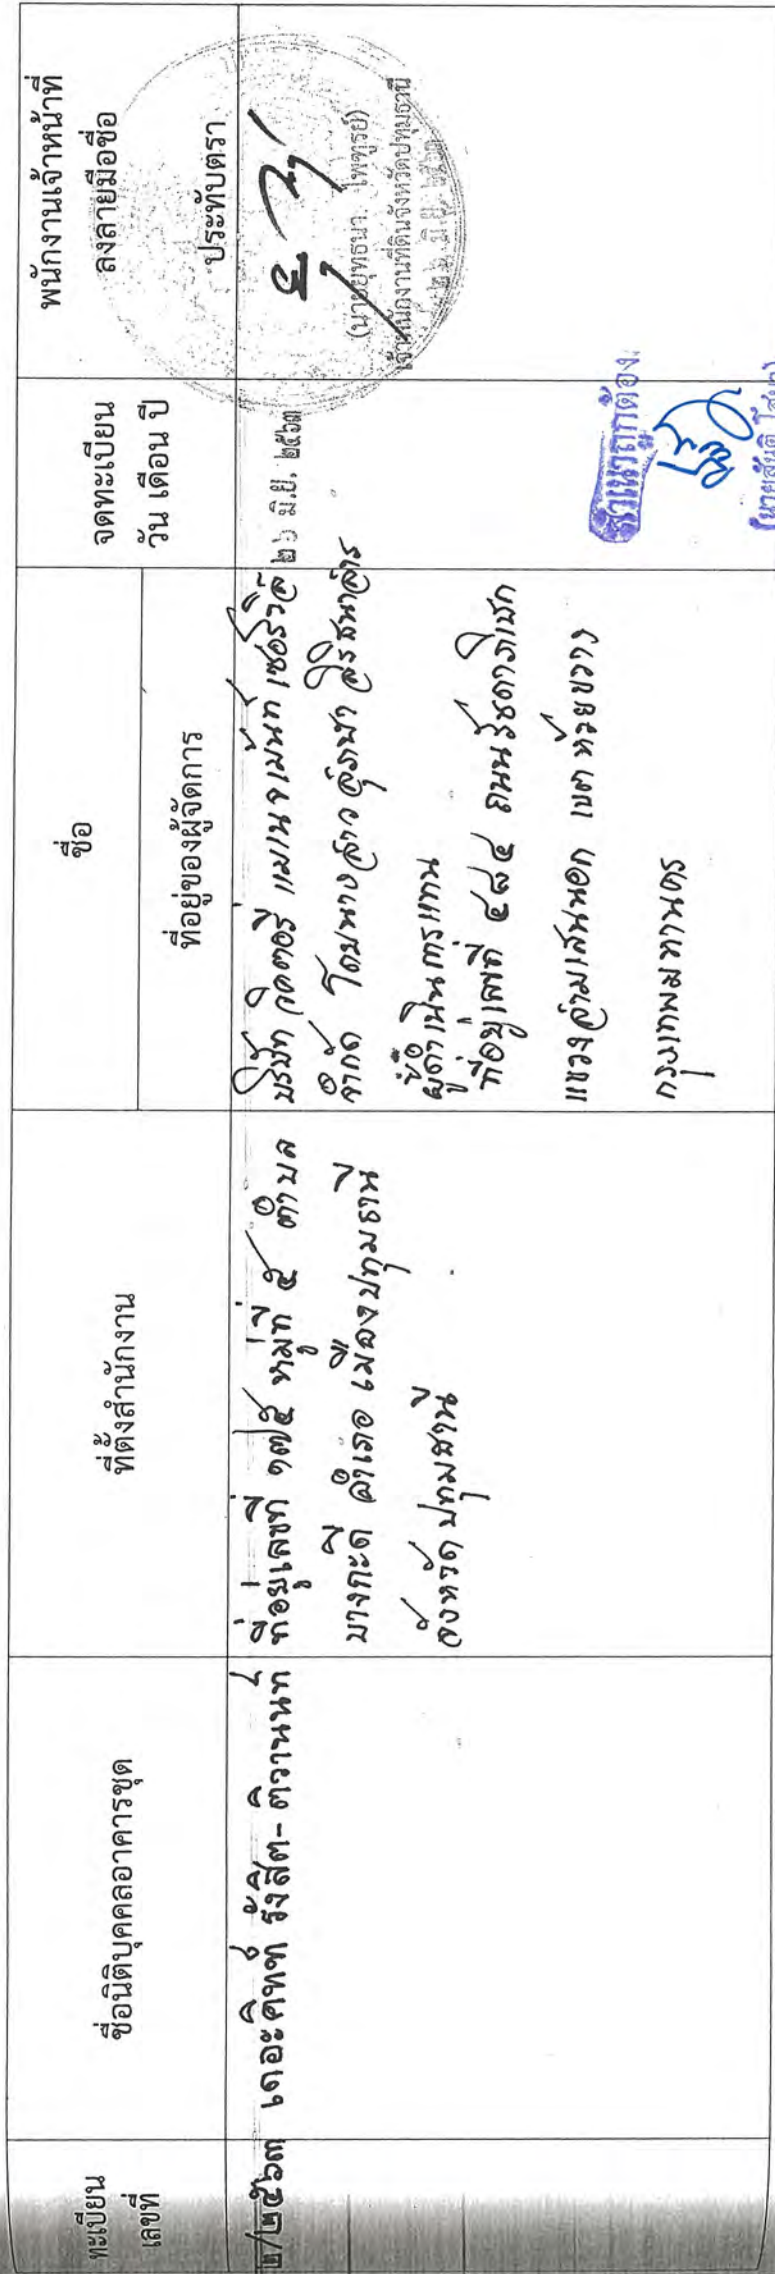 ทะเบียน
เลขที่
ชื่อนิติบุคคลอาคารชุด
ที่ตั้งสำนักงาน
ชื่อ
ที่อยู่ของผู้จัดการ
จดทะเบียน
วัน เดือน ปี
พนักงานเจ้าหน้าที่
ลงลายมือชื่อ
ประทับตรา
๒/๒๕๖๓
เดอะคิทท์ รังสิต-ติวานนท์
ที่อยู่เลขที่ ๑๗๕ หมู่ที่ ๕ ตำบล
บางกะดี อำเภอ เมืองปทุมธานี
จังหวัด ปทุมธานี
บริษัท วิคตอรี แมเนจเม้นท์ เซอร์วิส
จำกัด โดยนางสาว สุภา สิริธนาสาร
ผู้ดำเนินการแทน
ที่อยู่เลขที่ ๔๘๔ ถนนรัชดาภิเษก
แขวงสามเสนนอก เขต ห้วยขวาง
กรุงเทพมหานคร
๒๖ มิ.ย. ๒๕๖๓
(นายยุทธนา ไพฑูรย์)
เจ้าพนักงานที่ดินจังหวัดปทุมธานี
๒๖ มิ.ย. ๒๕๖๓
สำเนาถูกต้อง
(นายสันติ โสมา)